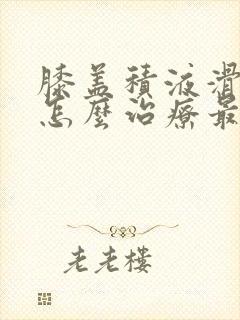 膝盖積液滑
怎麼治療最
老老樓